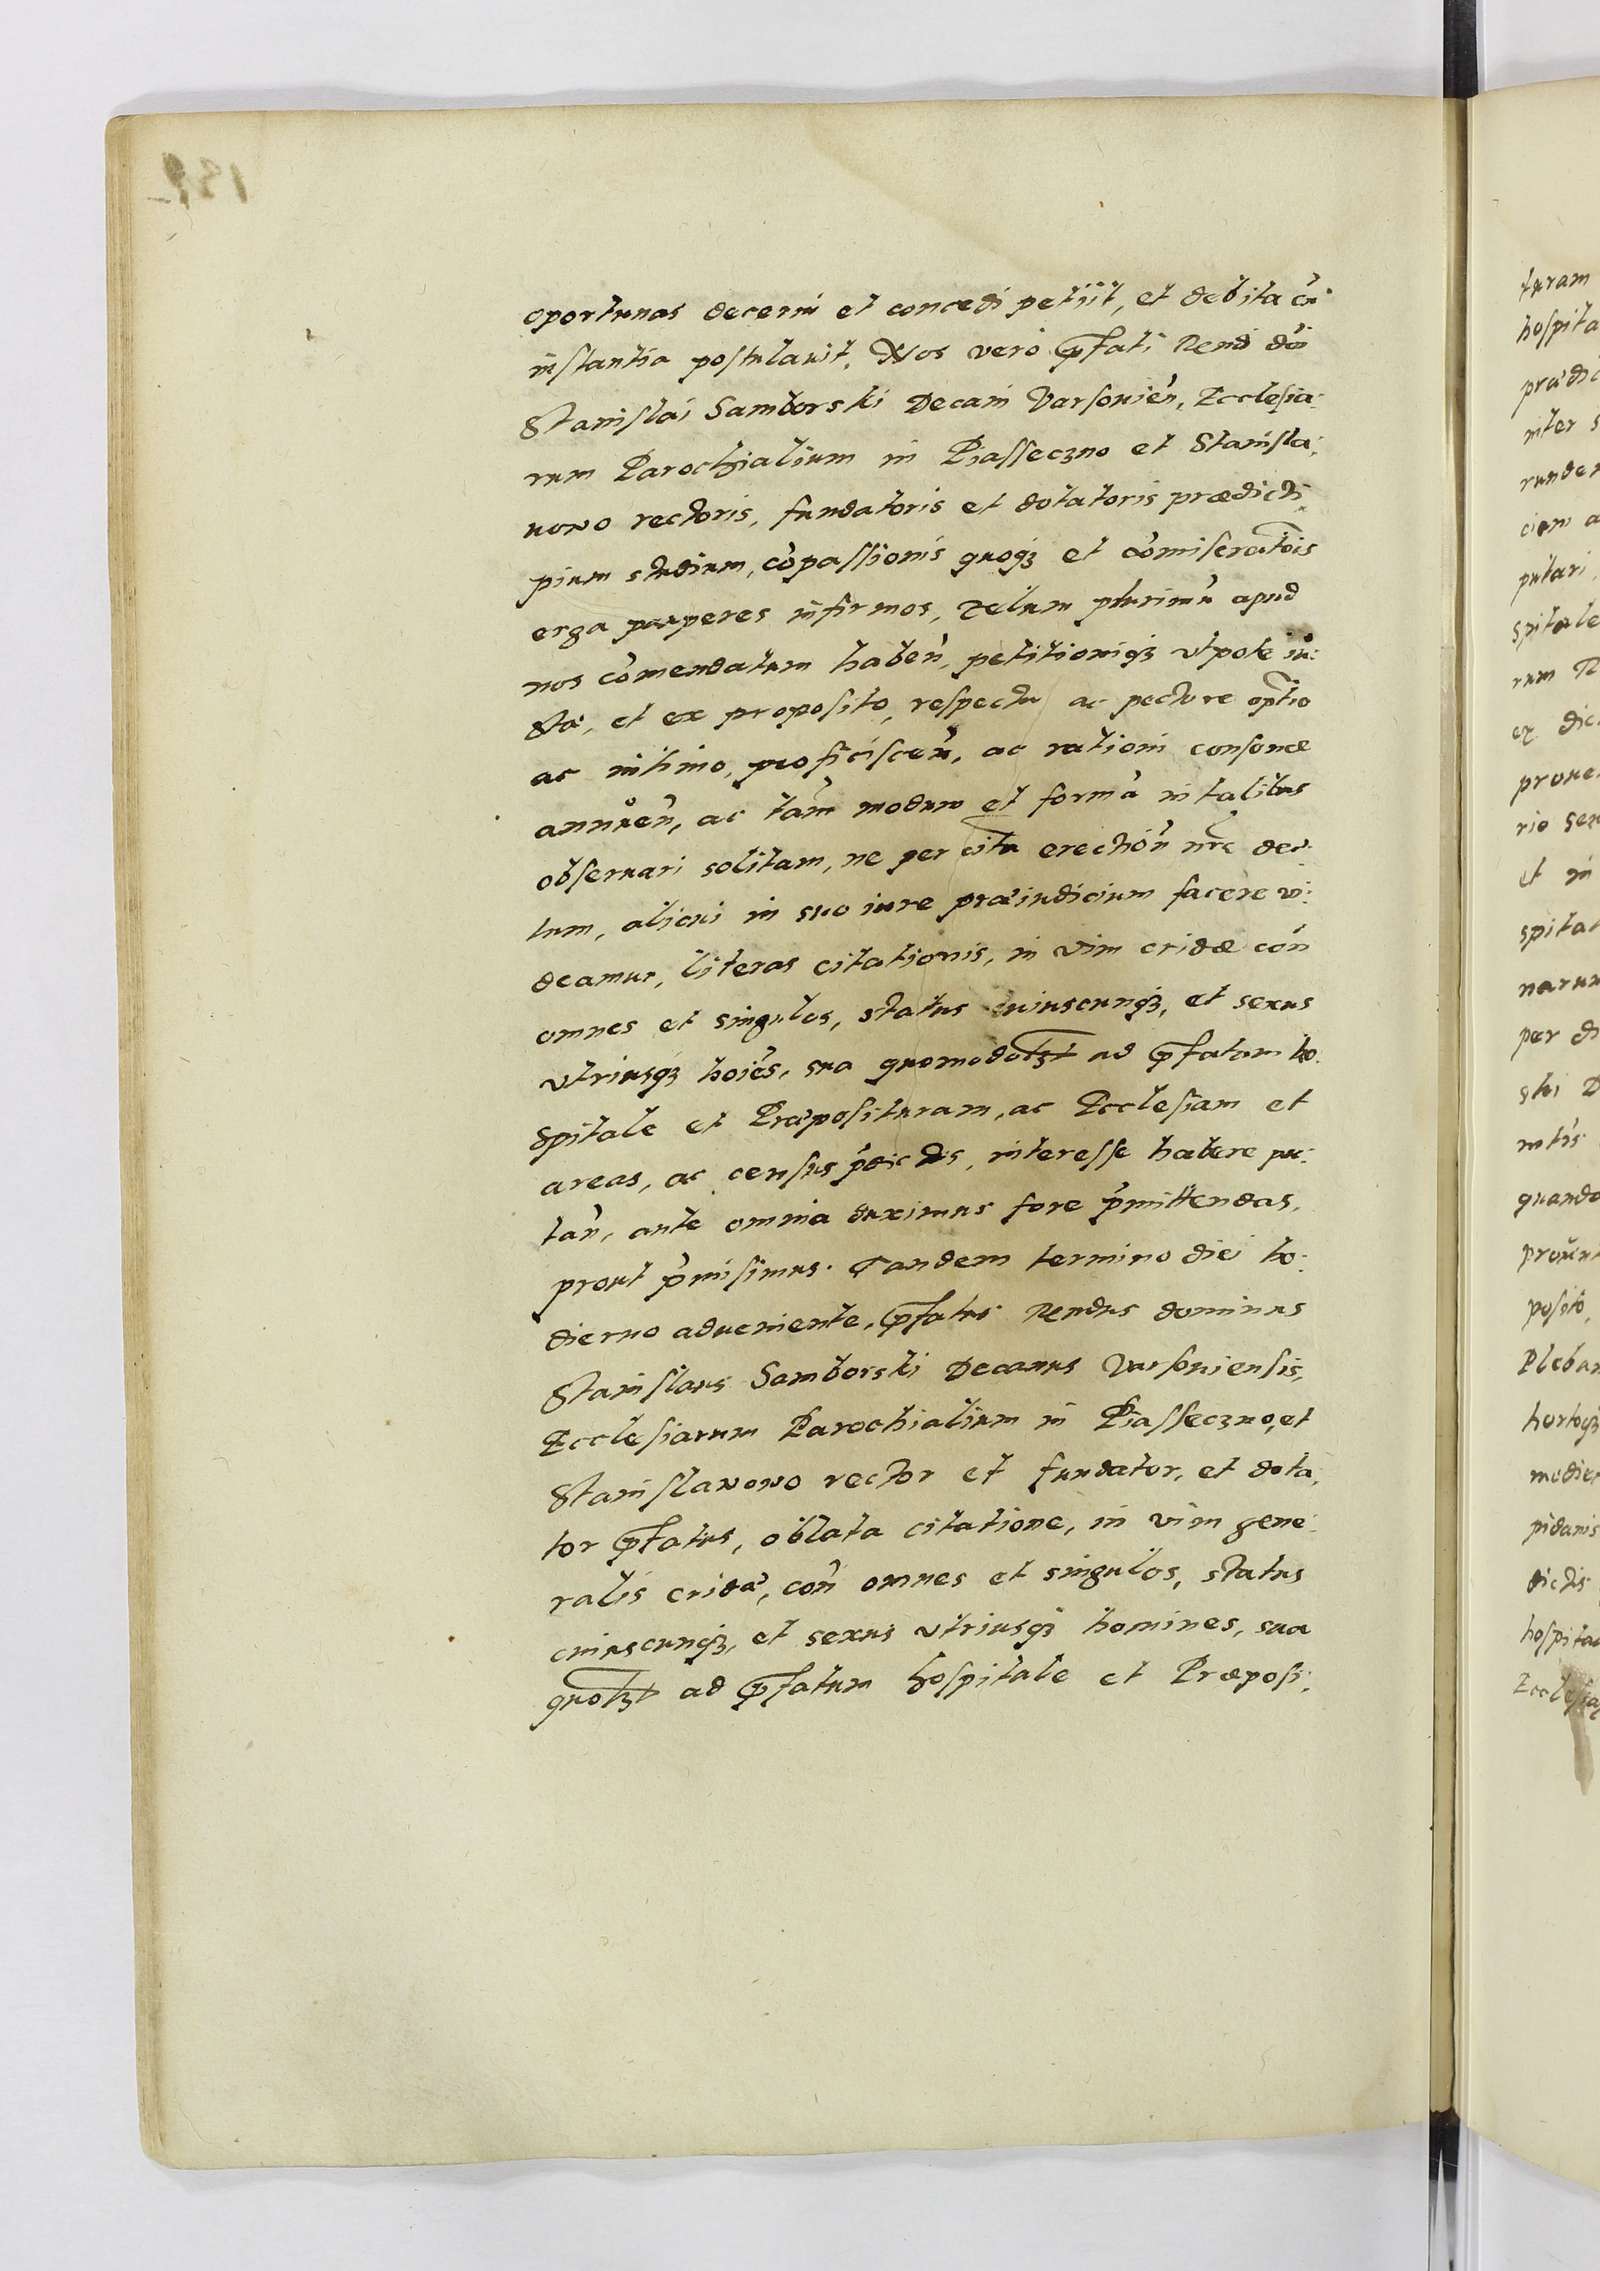 oportunas decerni et concedi petiit, et debita cũ
instantia postulauit. Nos vero p̃fati Rendi dñi
Stanislai Samborski Decani Varsouieñ, Ecclesia-
rum Parochialium in Piasseczno et Stanisla-
uowo rectoris, fundatoris et dotatoris prædicti
pium studium, cõpassionis quoqʒ et cõmiseratõis
erga pauperes infirmos, zelum plurimũ apud
nos cõmendatum habeñ, petitioniqʒ vtpote iu-
stæ, et ex proposito, respectu ac pectore optĩo
ac intimo, proficisceñ, ac rationi consonæ
annueñ, ac tam̃ modum et formã in talibus
obseruari solitam, ne per erectioñ nr̃ã dec
tum, alicui in suo iure præiudicium facere vi-
deamur, literas citationis, in vim cridæ coñ
omnes et singulos, status cuiuscunqʒ, et sexus
vtriusqʒ hoiẽs, sua quomodolʒt ad p̃fatum ho-
spitale et Præposituram, ac Ecclesiam et
areas, ac census p̃dictos, interesse habere pu-
tañ, ante omnia duximus fore p̃mittendas,
prout p̃misimus. Tandem termino diei ho-
dierno adueniente, p̃fatus Rendus dominus
Stanislaus Samborski Decanus Varsouiensis,
Ecclesiarum Parochialium in Piasseczno, et
Stanislawowo rector et fundator, et dota-
tor p̃fatus, oblata citatione, in vim gene-
ralis cridæ, coñ omnes et singulos, status
cuiuscunqʒ, et sexus vtriusqʒ homines, sua
quolʒt ad p̃fatum hospitale et Præposi-
turam
hospita
prædic
inter s
runden
cien a
putari,
spitale
rum R
dic
proue
rio sex
et in
spital
narum
per di
ski D
quando
posito,
Pleban
hortoqʒ
pidanis
dictis
hospita
Ecclesia